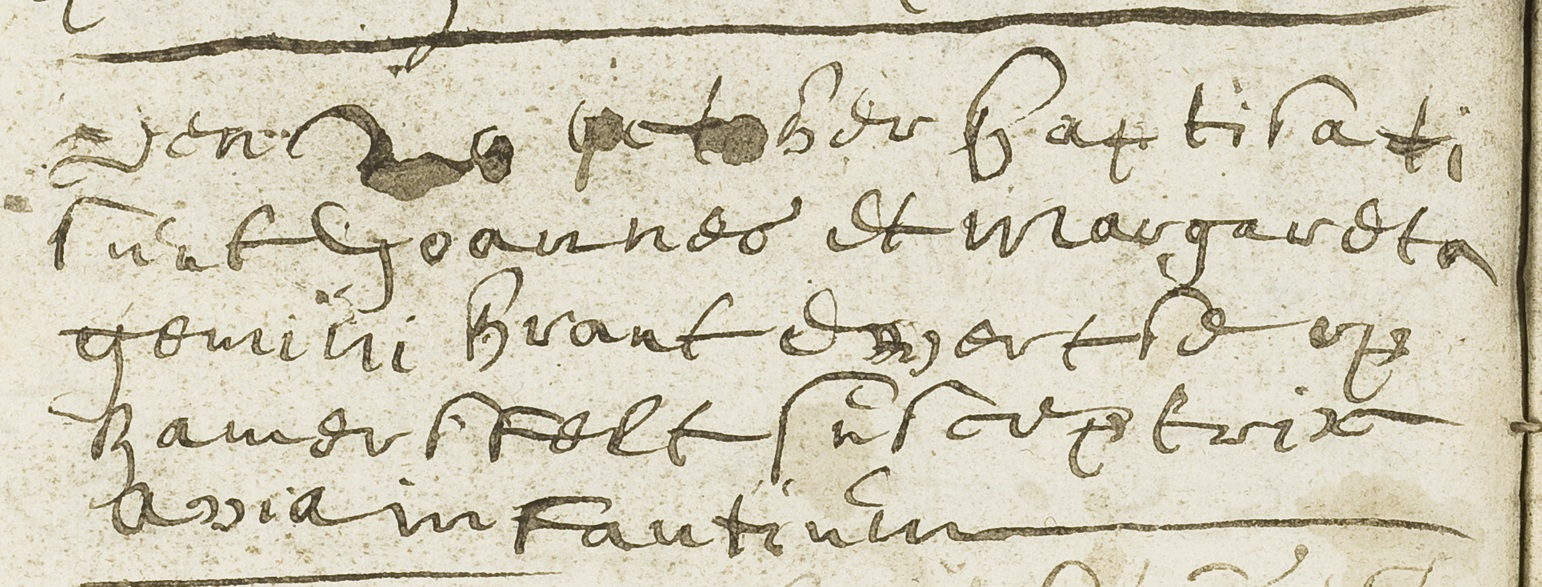 Den 20 october baptisati
sunt Joannes et Margareta
gemini brant evertse op
hamersfelt susceptrix
avia infantium